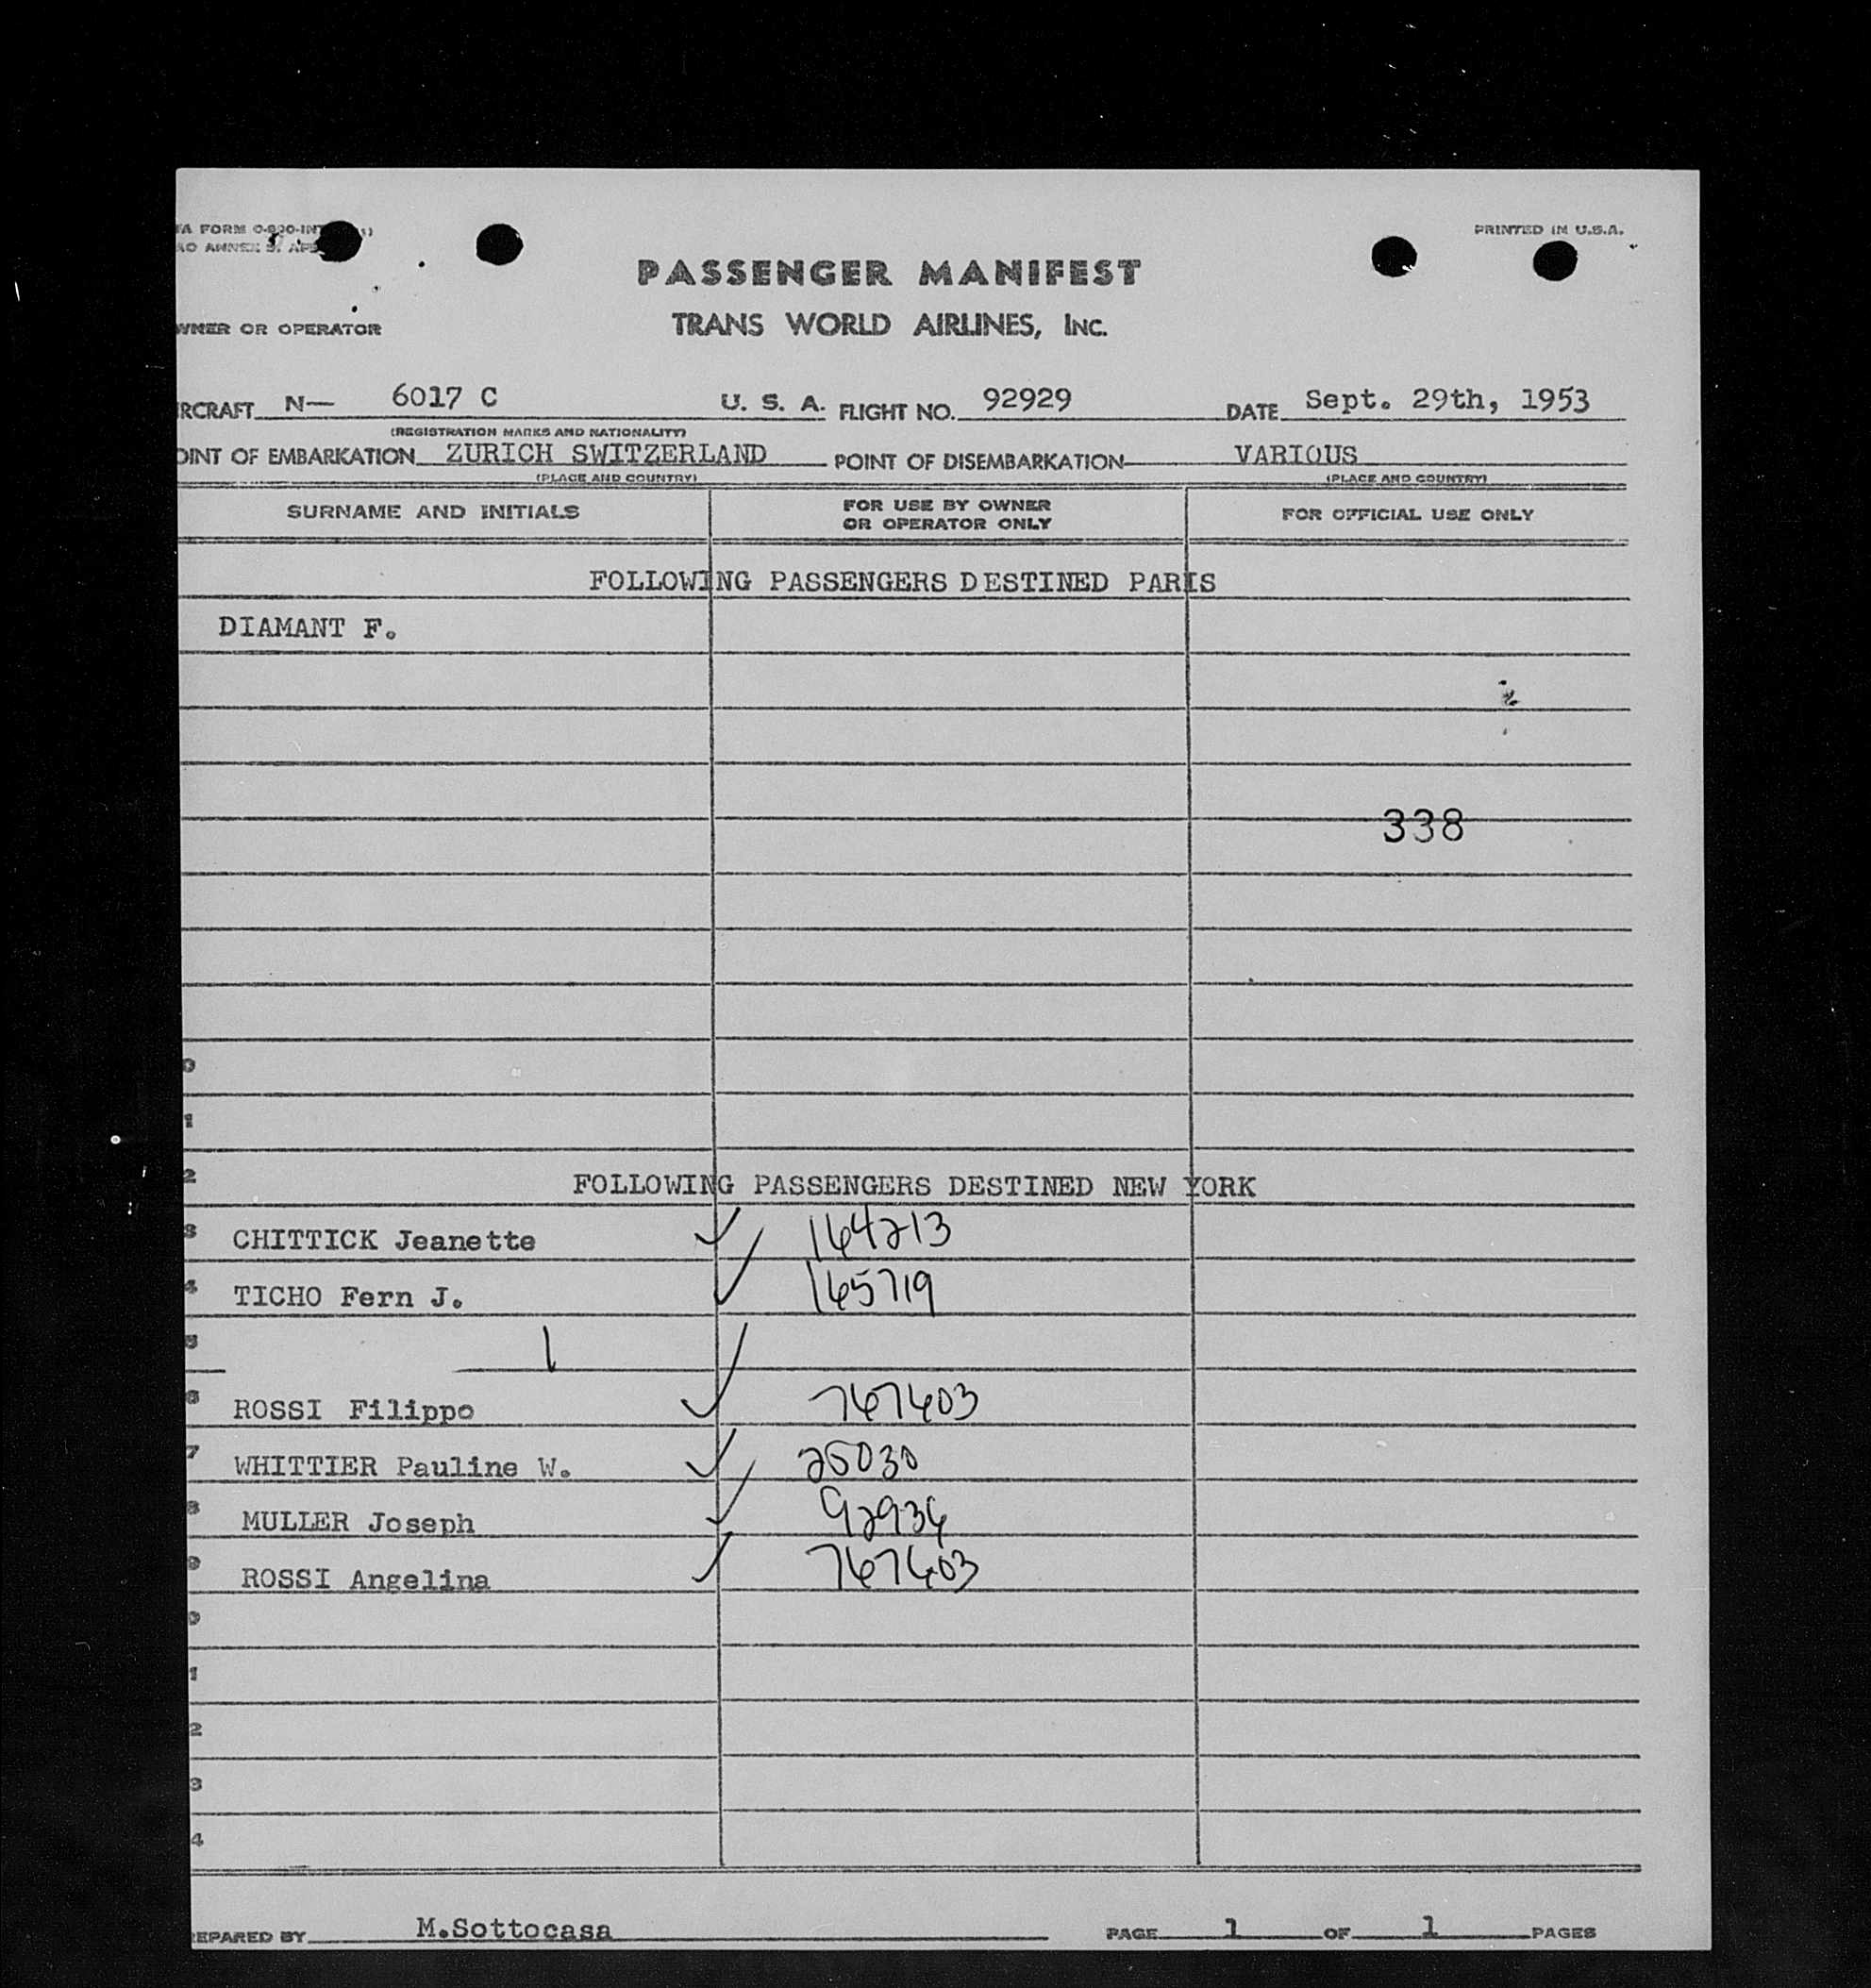 PRINTED IN U.S.A.
PASSENGER MANIFEST
TRANS WORLD AIRLINES, INC.
WNER OR OPERATOR
RCRAFT N— 6017 C U. S. A. FLIGHT NO. 92929 DATE Sept. 29th, 1953
(REGISTRATION MARKS AND NATIONALITY)
OINT OF EMBARKATION ZURICH SWITZERLAND POINT OF DISEMBARKATION VARIOUS
(PLACE AND COUNTRY) (PLACE AND COUNTRY)
SURNAME AND INITIALS FOR USE BY OWNER OR OPERATOR ONLY FOR OFFICIAL USE ONLY
FOLLOWING PASSENGERS DESTINED PARIS
DIAMANT F.
338
0
1
2 FOLLOWING PASSENGERS DESTINED NEW YORK
3 CHITTICK Jeanette 164213
4 TICHO Fern J. 165719
5
6 ROSSI Filippo 767603
7 WHITTIER Pauline W. 25030
8 MULLER Joseph 92936
9 ROSSI Angelina 767603
0
1
2
3
4
EPARED BY M.Sottocasa PAGE 1 OF 1 PAGES